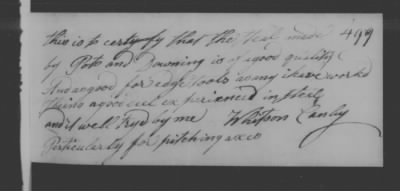 this is to certyfy that the steal made 499
by Pots and Downing is of good quality
And as good for edge tools as any i have workd
Being a good eal experienced in steal
and it well tryd by me Whitson Canby
Perticularly for pitching axes